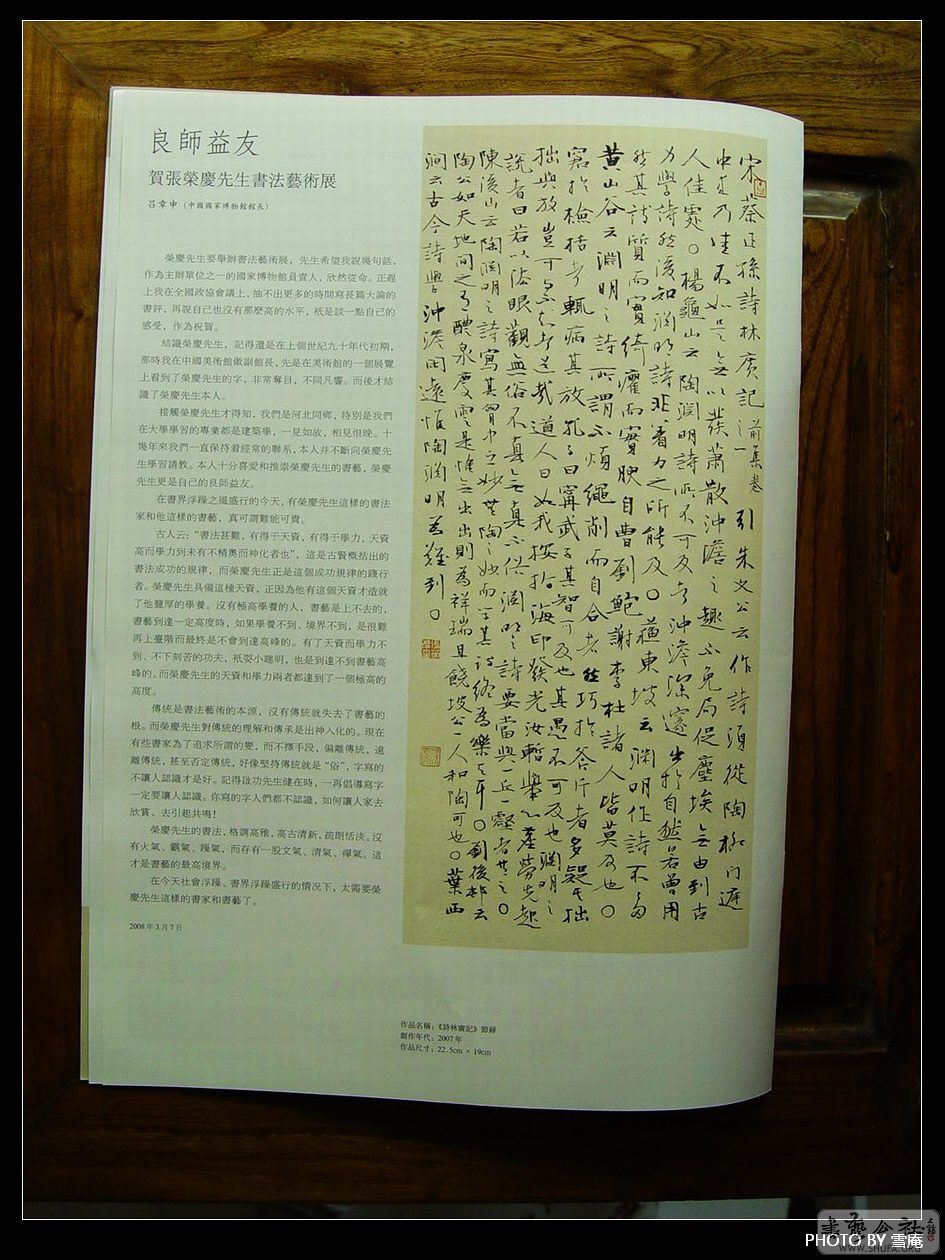 良師益友
賀張榮慶先生書法藝術展
呂章申（中國國家博物館館長）
榮慶先生要舉辦書法藝術展，先生希望我説幾句話，
作為主辦單位之一的國家博物館負責人，欣然從命。正趕
上我在全國政協會議上，抽不出更多的時間寫長篇大論的
書評，再説自己也沒有那麼高的水平，衹是談一點自己的
感受，作為祝賀。
結識榮慶先生，記得還是在上個世紀九十年代初期，
那時我在中國美術館做副館長，先是在美術館的一個展覽
上看到了榮慶先生的字，非常奪目，不同凡響。而後才結
識了榮慶先生本人。
接觸榮慶先生才得知，我們是河北同鄉，特別是我們
在大學學習的專業都是建築學，一見如故，相見恨晚。十
幾年來我們一直保持着經常的聯系，本人并不斷向榮慶先
生學習請教。本人十分喜愛和推崇榮慶先生的書藝，榮慶
先生更是自己的良師益友。
在書界浮躁之風盛行的今天，有榮慶先生這樣的書法
家和他這樣的書藝，真可謂難能可貴。
古人云：“書法甚難，有得于天資，有得于學力，天資
高而學力到未有不精奧而神化者也”，這是古賢概括出的
書法成功的規律，而榮慶先生正是這個成功規律的踐行
者。榮慶先生具備這種天資，正因為他有這個天資才造就
了他豐厚的學養。沒有極高學養的人，書藝是上不去的，
書藝到達一定高度時，如果學養不到、境界不到，是很難
再上臺階而最終是不會到達高峰的。有了天資而學力不
到、不下刻苦的功夫，衹耍小聰明，也是到達不到書藝高
峰的。而榮慶先生的天資和學力兩者都達到了一個極高的
高度。
傳統是書法藝術的本源，沒有傳統就失去了書藝的
根。而榮慶先生對傳統的理解和傳承是出神入化的。現在
有些書家為了追求所謂的變，而不擇手段，偏離傳統，遠
離傳統，甚至否定傳統，好像堅持傳統就是“俗”，字寫的
不讓人認識才是好。記得啟功先生健在時，一再倡導寫字
一定要讓人認識。你寫的字人們都不認識，如何讓人家去
欣賞、去引起共鳴！
榮慶先生的書法，格調高雅，高古清新，疏朗恬淡。沒
有火氣、霸氣、躁氣，而存有一股文氣、清氣、禪氣。這
才是書藝的最高境界。
在今天社會浮躁、書界浮躁盛行的情況下，太需要榮
慶先生這樣的書家和書藝了。
2008年3月7日
宋蔡正孫詩林廣記前集卷一引朱文公云作詩須從陶柳門遊
中來乃佳不如是無以發蕭散沖澹之趣不免局促塵埃無由到古
人佳處○楊龜山云陶淵明詩所不可及者沖澹深邃出於自然若曾用
力學詩然後知淵明詩非着力之所能及○蘇東坡云淵明作詩不多
然其詩質而實綺癯而實腴自曹劉鮑謝李杜諸人皆莫及也○
黄山谷云淵明之詩所謂不煩繩削而自合者然巧於斧斤者多疑其拙
窘於檢括者輒病其放孔子曰甯武子其智可及也其愚不可及也淵明之
拙與放豈可為不知者道哉道人曰如我按指海印發光汝暫舉心塵勞先起
説者曰若以法眼觀無俗不真若以世眼觀無真不俗淵明之詩要當與一丘一壑者共之○
陳後山云陶淵明之詩寫其胸中之妙無陶之妙而學其詩終為樂天耳○劉後村云
陶公如天地間之有醴泉慶雲是惟無出出則為祥瑞且饒坡公一人和陶可也○葉西
澗云古今詩學沖澹閑遠惟陶淵明為難到○
作品名稱：《詩林廣記》節録
創作年代：2007年
作品尺寸：22.5cm × 19cm
書藝公社
WWW.SHUFA.ORG
PHOTO BY 雪庵